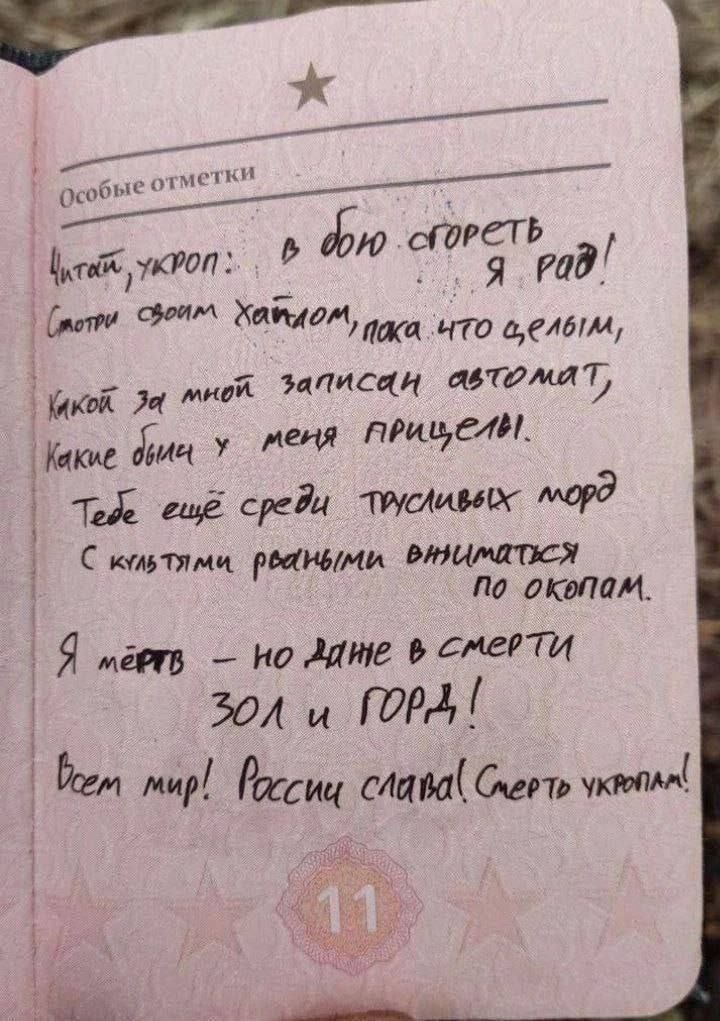 Особые отметки
Читай, укроп: в бою сгореть
я рад!
Смотри своим хайлом, пока что целым,
Какой за мной записан автомат,
Какие были у меня прицелы.
Тебе ещё среди трусливых морд
С культями рваными вжиматься
по окопам.
Я мёртв – но даже в смерти
зол и горд!
Всем мир! России слава! Смерть укропам!
11